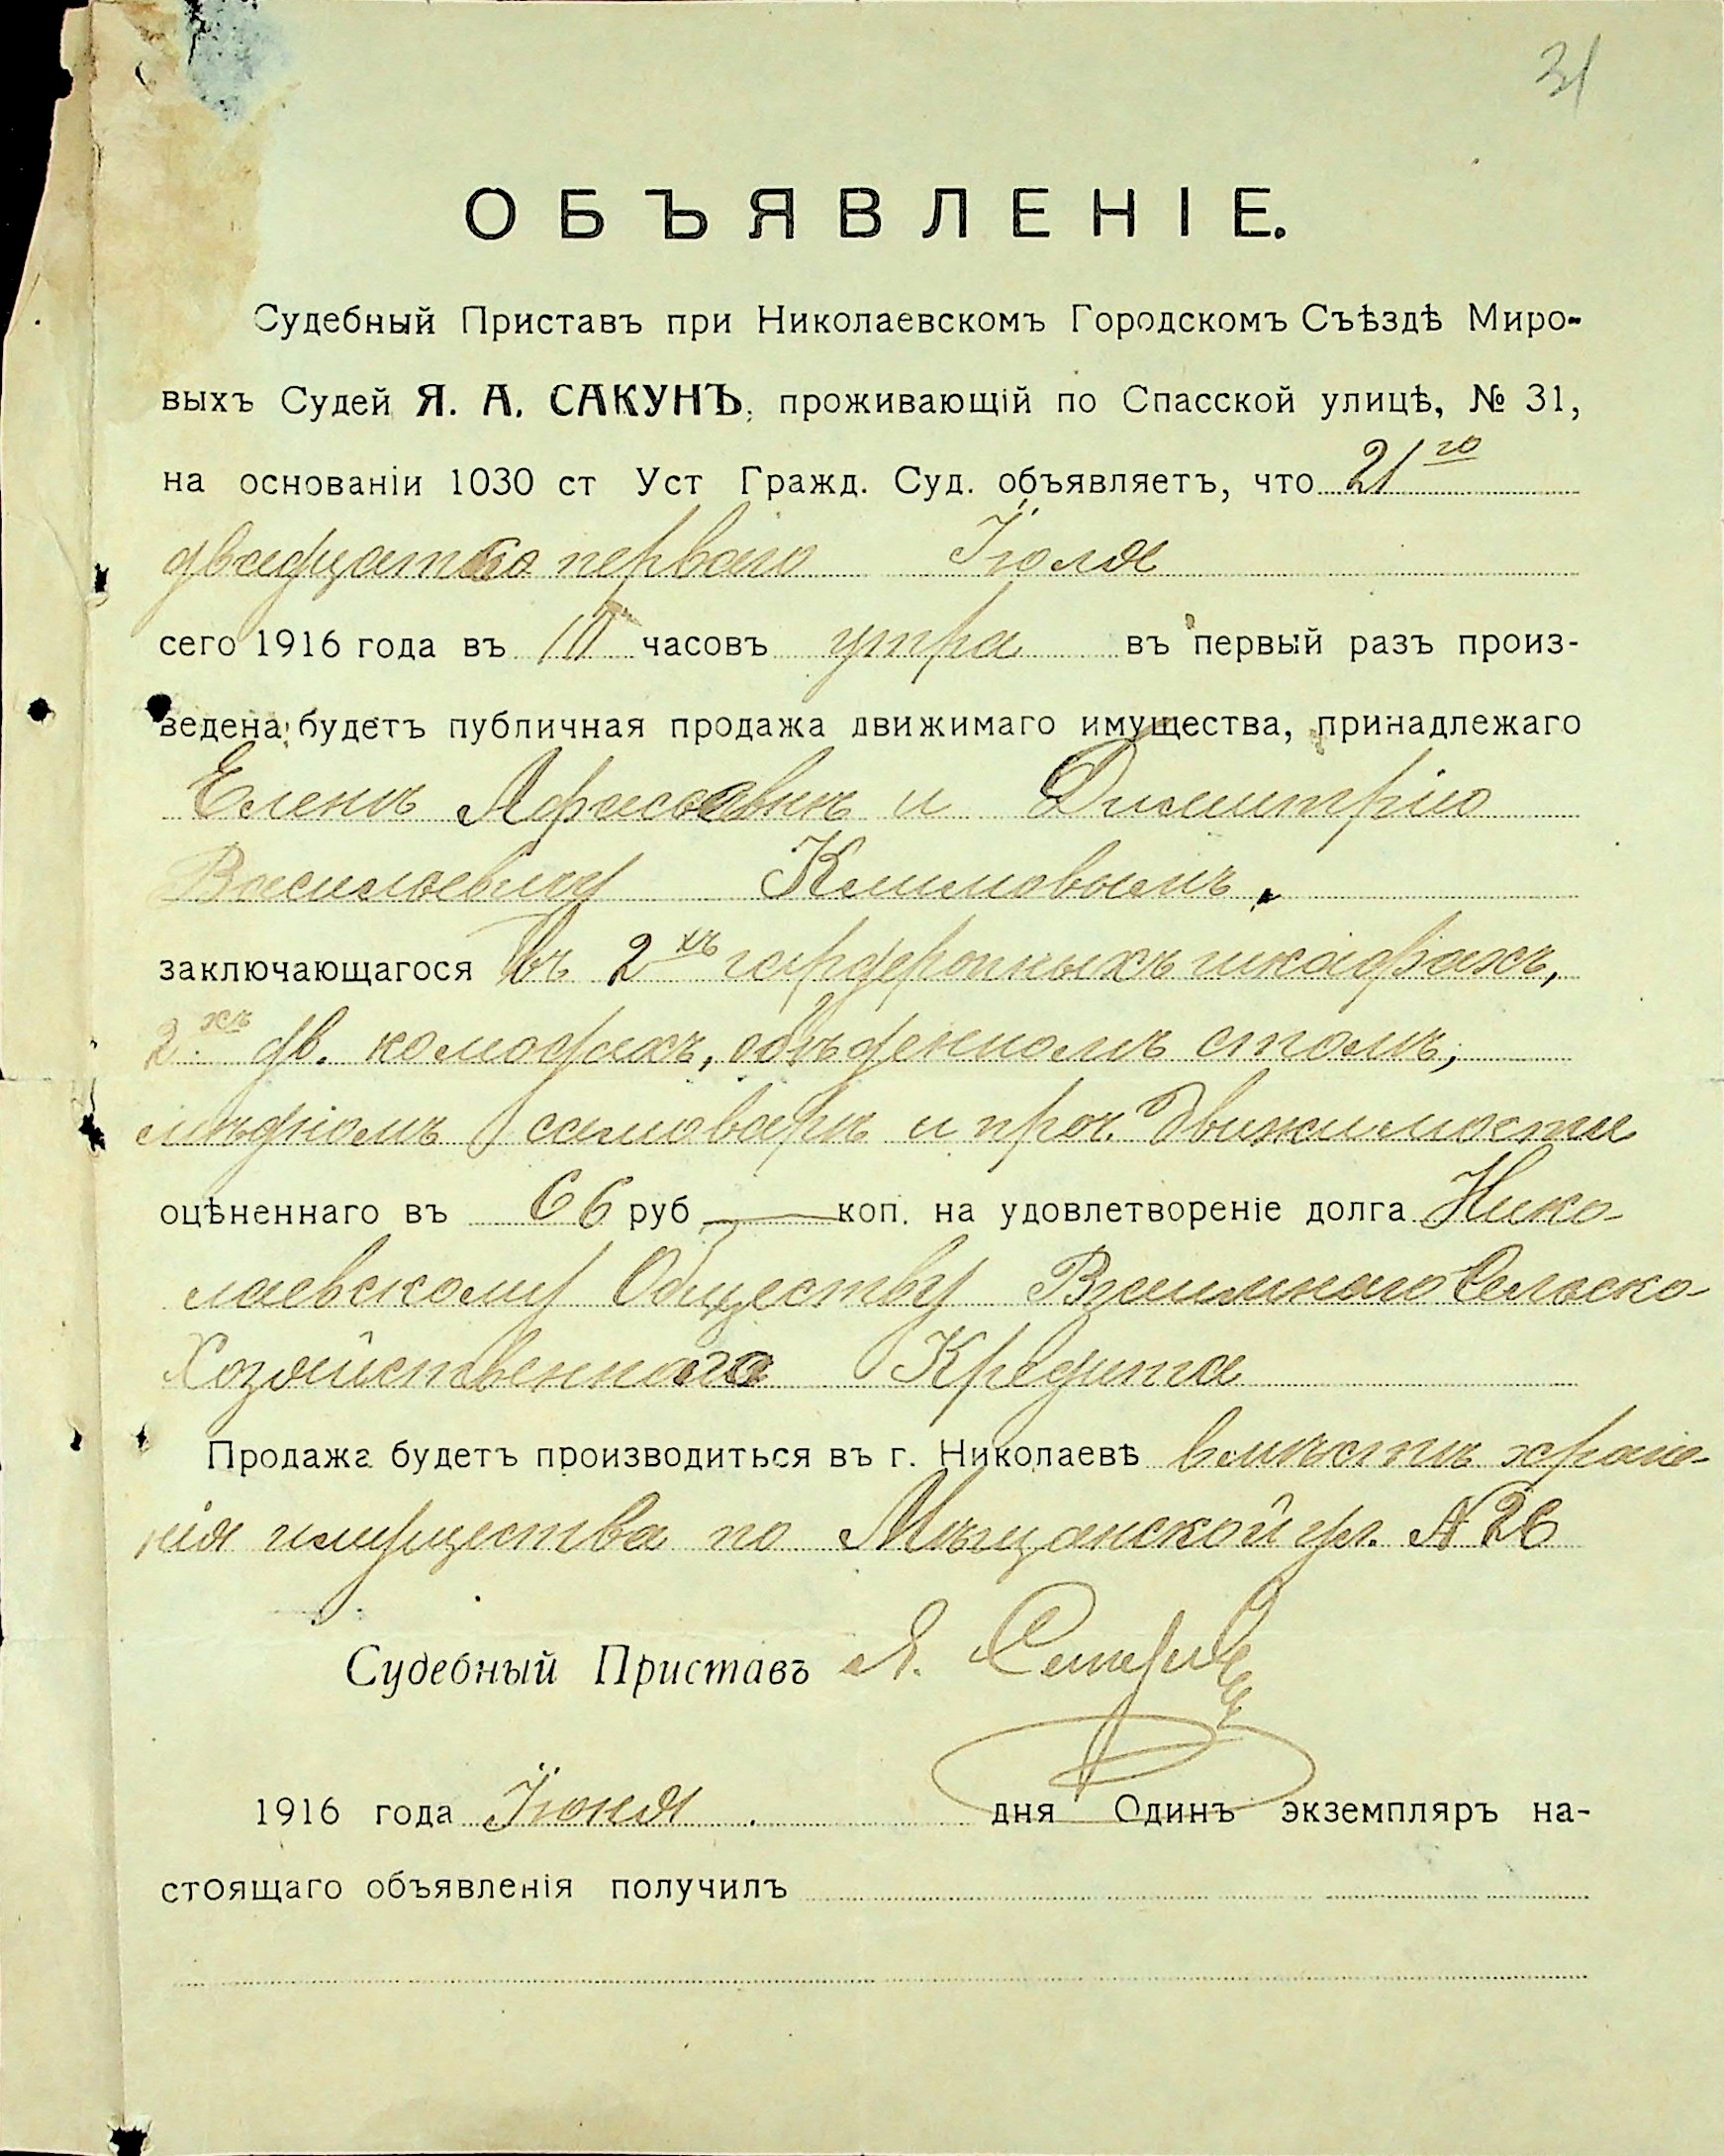 31
ОБЪЯВЛЕНІЕ.
Судебный Приставъ при Николаевскомъ Городскомъ Съѣздѣ Миро-
выхъ Судей Я. А. САКУНЪ, проживающій по Спасской улицѣ, № 31,
на основаніи 1030 ст Уст Гражд. Суд. объявляетъ, что 21го
двадцать перваго Іюля
сего 1916 года въ 10 часовъ утра въ первый разъ произ-
ведена будетъ публичная продажа движимаго имущества, принадлежаго
Еленѣ и Димитрію
Васильевичу Климовымъ,
заключающагося въ 2хъ гардеробныхъ шкафахъ,
2хъ дв. комодахъ, обѣденномъ столѣ,
мѣдномъ самоварѣ и проч. движимости
оцѣненнаго въ 66 руб — коп. на удовлетвореніе долга Нико-
лаевскому Обществу Взаимнаго Сельско-
Хозяйственнаго Кредита
Продажа будетъ производиться въ г. Николаевѣ вмѣстѣ хране-
нія имущества по Мѣщанской ул. № 26
Судебный Приставъ Я. Сакунъ
1916 года Іюня дня Одинъ экземпляръ на-
стоящаго объявленія получилъ